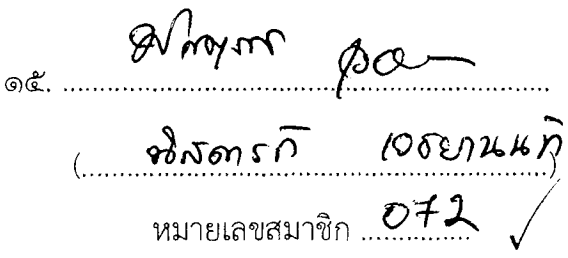 ๑๕. ........................................
(นิสดารก์ เวชยานนท์)
หมายเลขสมาชิก 072